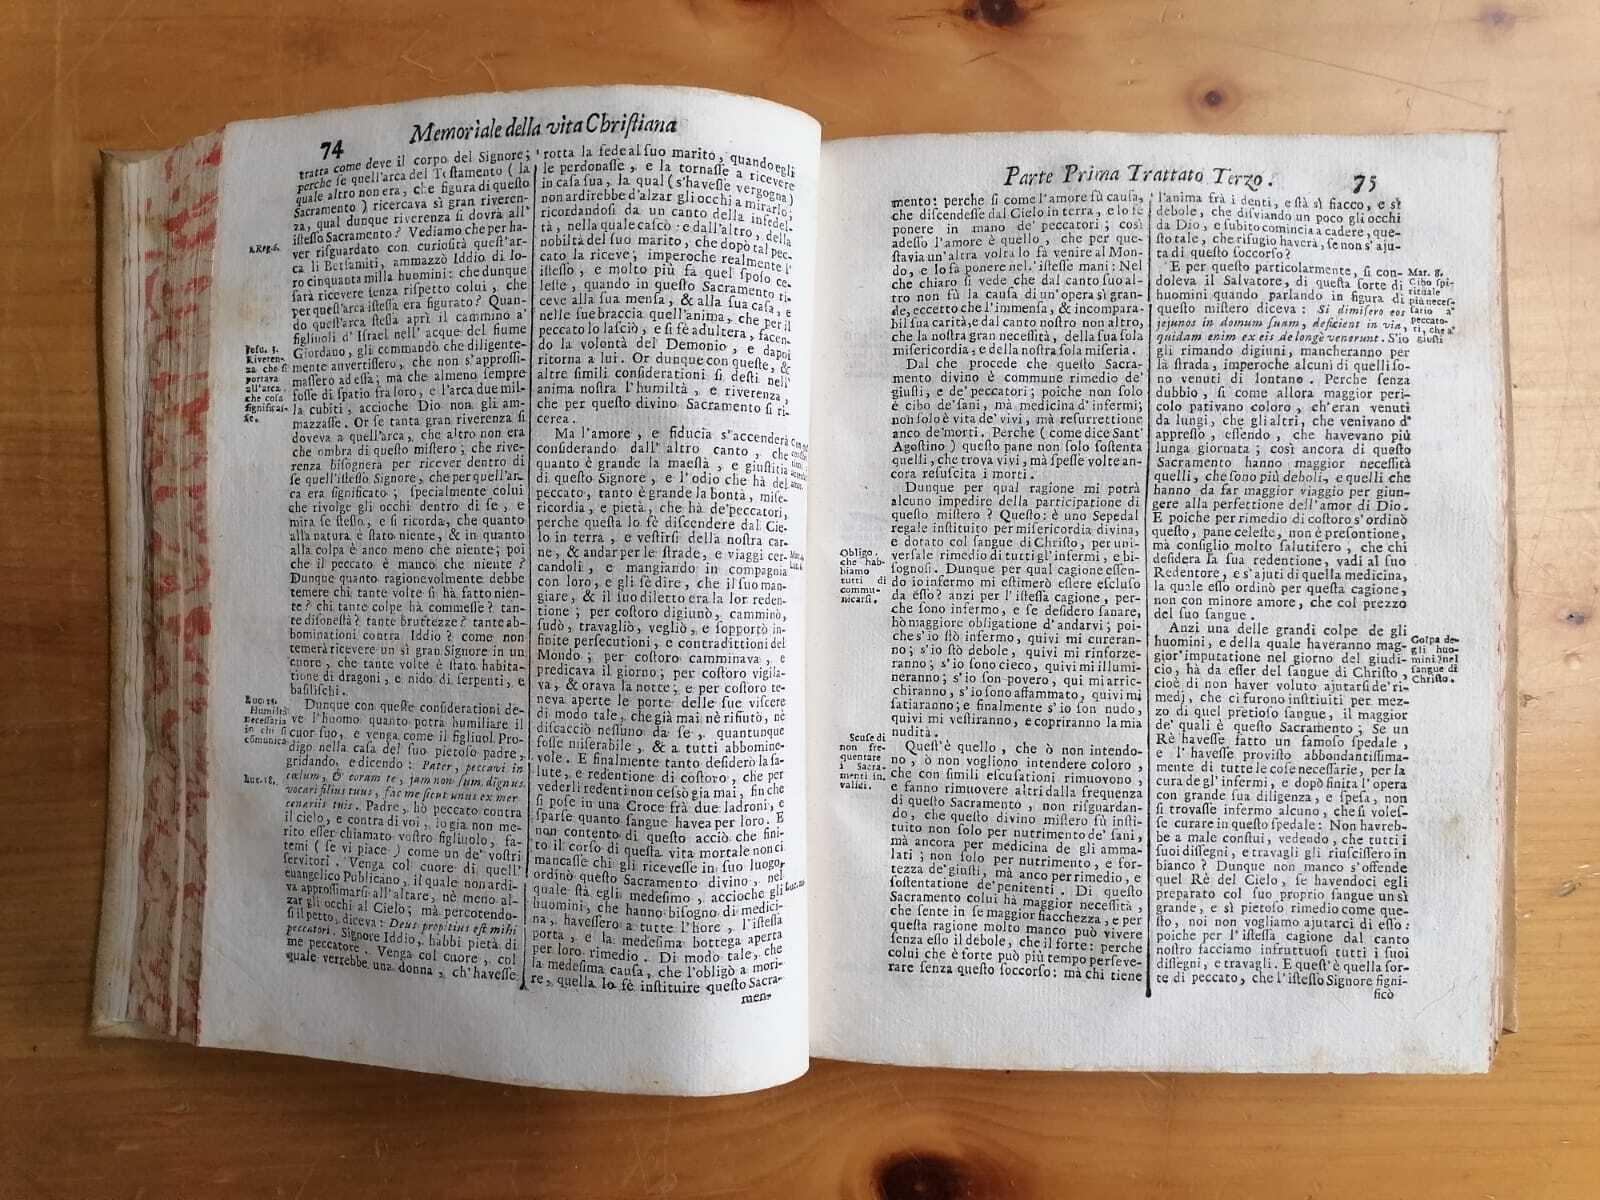 74
Memoriale della vita Chriſtiana
tratta come deve il corpo del Signore;
perche ſe quell'arca del Teſtamento (la
quale altro non era, che figura di queſto
Sacramento) ricercava sì gran riveren-
za, qual dunque riverenza ſi dovrà all'
iſteſſo Sacramento? Vediamo che per ha-
ver riſguardato con curioſità queſt'ar-
ca li Betſamiti, ammazzò Iddio di lo-
ro cinquanta milla huomini: che dunque
ſarà ricevere ſenza riſpetto colui, che
per queſt'arca iſteſſa era figurato? Quan-
do queſt'arca ſteſſa aprì il cammino a'
figliuoli d' Iſrael nell' acque del fiume
Giordano, gli commandò che diligente-
mente anvertiſſero, che non s'approſſi-
maſſero ad eſſa; ma che almeno ſempre
foſſe di ſpatio fra loro, e l'arca due mil-
la cubiti, accioche Dio non gli am-
mazzaſſe. Or ſe tanta gran riverenza ſi
doveva a quell'arca, che altro non era
che ombra di queſto miſtero; che rive-
renza biſognerà per ricever dentro di
ſe quell'iſteſſo Signore, che per quell'ar-
ca era ſignificato; ſpecialmente colui
che rivolge gli occhi dentro di ſe, e
mira ſe ſteſſo, e ſi ricorda, che quanto
alla natura è ſtato niente, & in quanto
alla colpa è anco meno che niente; poi
che il peccato è manco che niente?
Dunque quanto ragionevolmente debbe
temere chi tante volte ſi hà fatto nien-
te? chi tante colpe hà commeſſe? tan-
te diſoneſtà? tante bruttezze? tante ab-
bominationi contra Iddio? come non
temerà ricevere un sì gran Signore in un
cuore, che tante volte è ſtato habita-
tione di dragoni, e nido di ſerpenti, e
baſiliſchi.
Dunque con queſte conſiderationi de-
ve l'huomo quanto potrà humiliare il
cuor ſuo, e venga come il figliuol Pro-
digo nella caſa del ſuo pietoſo padre,
gridando, e dicendo: Pater, peccavi in
cælum, & coram te, jam non ſum dignus
vocari filius tuus, fac me ſicut unus ex mer-
cenariis tuis. Padre, hò peccato contra
il cielo, e contra di voi, io già non me-
rito eſſer chiamato voſtro figliuolo, fa-
temi (ſe vi piace) come un de' voſtri
ſervitori. Venga col cuore di quell'
euangelico Publicano, il quale non ardi-
va approſſimarſi all'altare, nè meno al-
zar gli occhi al Cielo; mà percotendo-
ſi il petto, diceva: Deus propitius eſt mihi
peccatori. Signore Iddio, habbi pietà di
me peccatore. Venga col cuore, col
quale verrebbe una donna, ch'haveſſe
1. Reg. 6.
Joſu. 3.
Riveren-
za che ſi
portava
all'arca
che coſa
ſignificaſ-
ſe.
Luc. 15.
Humiltà
neceſſaria
in chi ſi
comunica
Luc. 18.
rotta la fede al ſuo marito, quando egli
le perdonaſſe, e la tornaſſe a ricevere
in caſa ſua, la qual (s'haveſſe vergogna)
non ardirebbe d'alzar gli occhi a mirarlo;
ricordandoſi da un canto della infedel-
tà, nella quale caſcò: e dall'altro, della
nobiltà del ſuo marito, che dopò tal pec-
cato la riceve; imperoche realmente l'
iſteſſo, e molto più fa quel ſpoſo ce-
leſte, quando in queſto Sacramento ri-
ceve alla ſua menſa, & alla ſua caſa, e
nelle ſue braccia quell'anima, che per il
peccato lo laſciò, e ſi fè adultera, facen-
do la volontà del Demonio, e dapoi
ritorna a lui. Or dunque con queſte, &
altre ſimili conſiderationi ſi deſti nell'
anima noſtra l'humiltà, e riverenza,
che per queſto divino Sacramento ſi ri-
cerca.
Ma l'amore, e fiducia s'accenderà
conſiderando dall' altro canto, che
quanto è grande la maeſtà, e giuſtitia
di queſto Signore, e l'odio che hà del
peccato, tanto è grande la bontà, miſe-
ricordia, e pietà, che hà de'peccatori,
perche queſta lo fè diſcendere dal Cie-
lo in terra, e veſtirſi della noſtra car-
ne, & andar per le ſtrade, e viaggi cer-
candoli, e mangiando in compagnia
con loro, e gli fè dire, che il ſuo man-
giare, & il ſuo diletto era la lor reden-
tione; per coſtoro digiunò, camminò,
ſudò, travagliò, vegliò, e ſopportò in-
finite perſecutioni, e contradittioni del
Mondo; per coſtoro camminava, e
predicava il giorno; per coſtoro vigila-
va, & orava la notte; e per coſtoro te-
neva aperte le porte delle ſue viſcere
di modo tale, che già mai nè rifiutò, nè
diſcacciò neſſuno da ſe, quantunque
foſſe miſerabile, & a tutti abbomine-
vole. E finalmente tanto deſiderò la ſa-
lute, e redentione di coſtoro, che per
vederli redenti non ceſsò gia mai, fin che
ſi poſe in una Croce frà due ladroni, e
ſparſe quanto ſangue havea per loro. E
non contento di queſto acciò che fini-
to il corſo di queſta vita mortale non ci
mancaſſe chi gli riceveſſe in ſuo luogo,
ordinò queſto Sacramento divino, nel
quale ſtà egli medeſimo, accioche gli
huomini, che hanno biſogno di medici-
na, haveſſero a tutte l'hore, l'iſteſſa
porta, e la medeſima bottega aperta
per loro rimedio. Di modo tale, che
la medeſima cauſa, che l'obligò a mori-
re, quella lo fè inſtituire queſto Sacra-
men-
Parte Prima Trattato Terzo.
75
mento: perche ſi come l'amore fù cauſa,
che diſcendeſſe dal Cielo in terra, e lo fè
ponere in mano de' peccatori; così
adeſſo l'amore è quello, che per que-
ſta via un'altra volta lo fà venire al Mon-
do, e lo fà ponere nel.' iſteſſe mani: Nel
che chiaro ſi vede che dal canto ſuo al-
tro non fù la cauſa di un'opera sì gran-
de, eccetto che l'immenſa, & incompara-
bil ſua carità, e dal canto noſtro non altro,
che la noſtra gran neceſſità, della ſua ſola
miſericordia, e della noſtra ſola miſeria.
Dal che procede che queſto Sacra-
mento divino è commune rimedio de'
giuſti, e de' peccatori; poiche non ſolo
è cibo de' ſani, mà medicina d'infermi;
non ſolo è vita de' vivi, mà reſurrettione
anco de'morti. Perche (come dice Sant'
Agoſtino) queſto pane non ſolo ſoſtenta
quelli, che trova vivi, mà ſpeſſe volte an-
cora reſuſcita i morti.
Dunque per qual ragione mi potrà
alcuno impedire della participatione di
queſto miſtero? Queſto: è uno Sepedal
regale inſtituito per miſericordia divina,
e dotato col ſangue di Chriſto, per uni-
verſale rimedio di tutti gl'infermi, e bi-
ſognoſi. Dunque per qual cagione eſſen-
do io infermo mi eſtimerò eſſere eſcluſo
da eſſo? anzi per l'iſteſſa cagione, per-
che ſono infermo, e ſe deſidero ſanare,
hò maggiore obligatione d'andarvi; poi-
che s'io ſtò infermo, quivi mi cureran-
no; s'io ſtò debole, quivi mi rinforze-
ranno; s'io ſono cieco, quivi mi illumi-
neranno; s'io ſon povero, qui mi arric-
chiranno, s'io ſono affammato, quivi mi
fatiaranno; e finalmente s'io ſon nudo,
quivi mi veſtiranno, e copriranno la mia
nudità.
Queſt'è quello, che ò non intendo-
no, ò non vogliono intendere coloro,
che con ſimili eſcuſationi rimuovono,
e fanno rimuovere altri dalla frequenza
di queſto Sacramento, non riſguardan-
do, che queſto divino miſtero fù inſti-
tuito non ſolo per nutrimento de' ſani,
mà ancora per medicina de gli amma-
lati; non ſolo per nutrimento, e for-
tezza de'giuſti, mà anco per rimedio, e
ſoſtentatione de'penitenti. Di queſto
Sacramento colui hà maggior neceſſità,
che ſente in ſe maggior fiacchezza, e per
queſta ragione molto manco può vivere
ſenza eſſo il debole, che il forte: perche
colui che è forte può più tempo perſeve-
rare ſenza queſto ſoccorſo: mà chi tiene
Obligo,
che hab-
biamo
tutti di
commu-
nicarſi.
Scuſe di
non fre-
quentare
i Sacra-
menti in-
valide.
l'anima frà i denti, e ſtà sì fiacco, e sì
debole, che diſviando un poco gli occhi
da Dio, e ſubito comincia a cadere, que-
ſto tale, che rifugio haverà, ſe non s'aju-
ta di queſto ſoccorſo?
E per queſto particolarmente, ſi con-
doleva il Salvatore, di queſta ſorte di
huomini quando parlando in figura di
queſto miſtero diceva: Si dimiſero eos
jejunos in domum ſuam, deficient in via,
quidam enim ex eis de longè venerunt. S'io
gli rimando digiuni, mancheranno per
la ſtrada, imperoche alcuni di quelli ſo-
no venuti di lontano. Perche ſenza
dubbio, ſi come allora maggior peri-
colo pativano coloro, ch'eran venuti
da lungi, che gli altri, che venivano d'
appreſſo, eſſendo, che havevano più
lunga giornata; così ancora di queſto
Sacramento hanno maggior neceſſità
quelli, che ſono più deboli, e quelli che
hanno da far maggior viaggio per giun-
gere alla perfettione dell'amor di Dio.
E poiche per rimedio di coſtoro s'ordinò
queſto, pane celeſte, non è preſontione,
mà conſiglio molto ſalutifero, che chi
deſidera la ſua redentione, vadi al ſuo
Redentore, e s'ajuti di quella medicina,
la quale eſſo ordinò per queſta cagione,
non con minore amore, che col prezzo
del ſuo ſangue.
Anzi una delle grandi colpe de gli
huomini, e della quale haveranno mag-
gior'imputatione nel giorno del giudi-
cio, hà da eſſer del ſangue di Chriſto,
cioè di non haver voluto ajutarſi de'ri-
medj, che ci furono inſtituiti per mez-
zo di quel pretioſo ſangue, il maggior
de' quali è queſto Sacramento; Se un
Rè haveſſe fatto un famoſo ſpedale,
e l' haveſſe proviſto abbondantiſſima-
mente di tutte le coſe neceſſarie, per la
cura de gl' infermi, e dopò finita l'opera
con grande ſua diligenza, e ſpeſa, non
ſi trovaſſe infermo alcuno, che ſi voleſ-
ſe curare in queſto ſpedale: Non havreb-
be a male coſtui, vedendo, che tutti i
ſuoi diſſegni, e travagli gli riuſciſſero in
bianco? Dunque non manco s'offende
quel Rè del Cielo, ſe havendoci egli
preparato col ſuo proprio ſangue un sì
grande, e sì pietoſo rimedio come que-
ſto, noi non vogliamo ajutarci di eſſo:
poiche per l'iſteſſa cagione dal canto
noſtro facciamo infruttuoſi tutti i ſuoi
diſſegni, e travagli. E queſt'è quella ſor-
te di peccato, che l'iſteſſo Signore ſigni-
ficò
Mar. 8.
Cibo ſpi-
rituale
più neceſ-
ſario a'
peccato-
ri, che a'
giuſti
Colpa de-
gli huo-
mini nel
ſangue di
Chriſto.